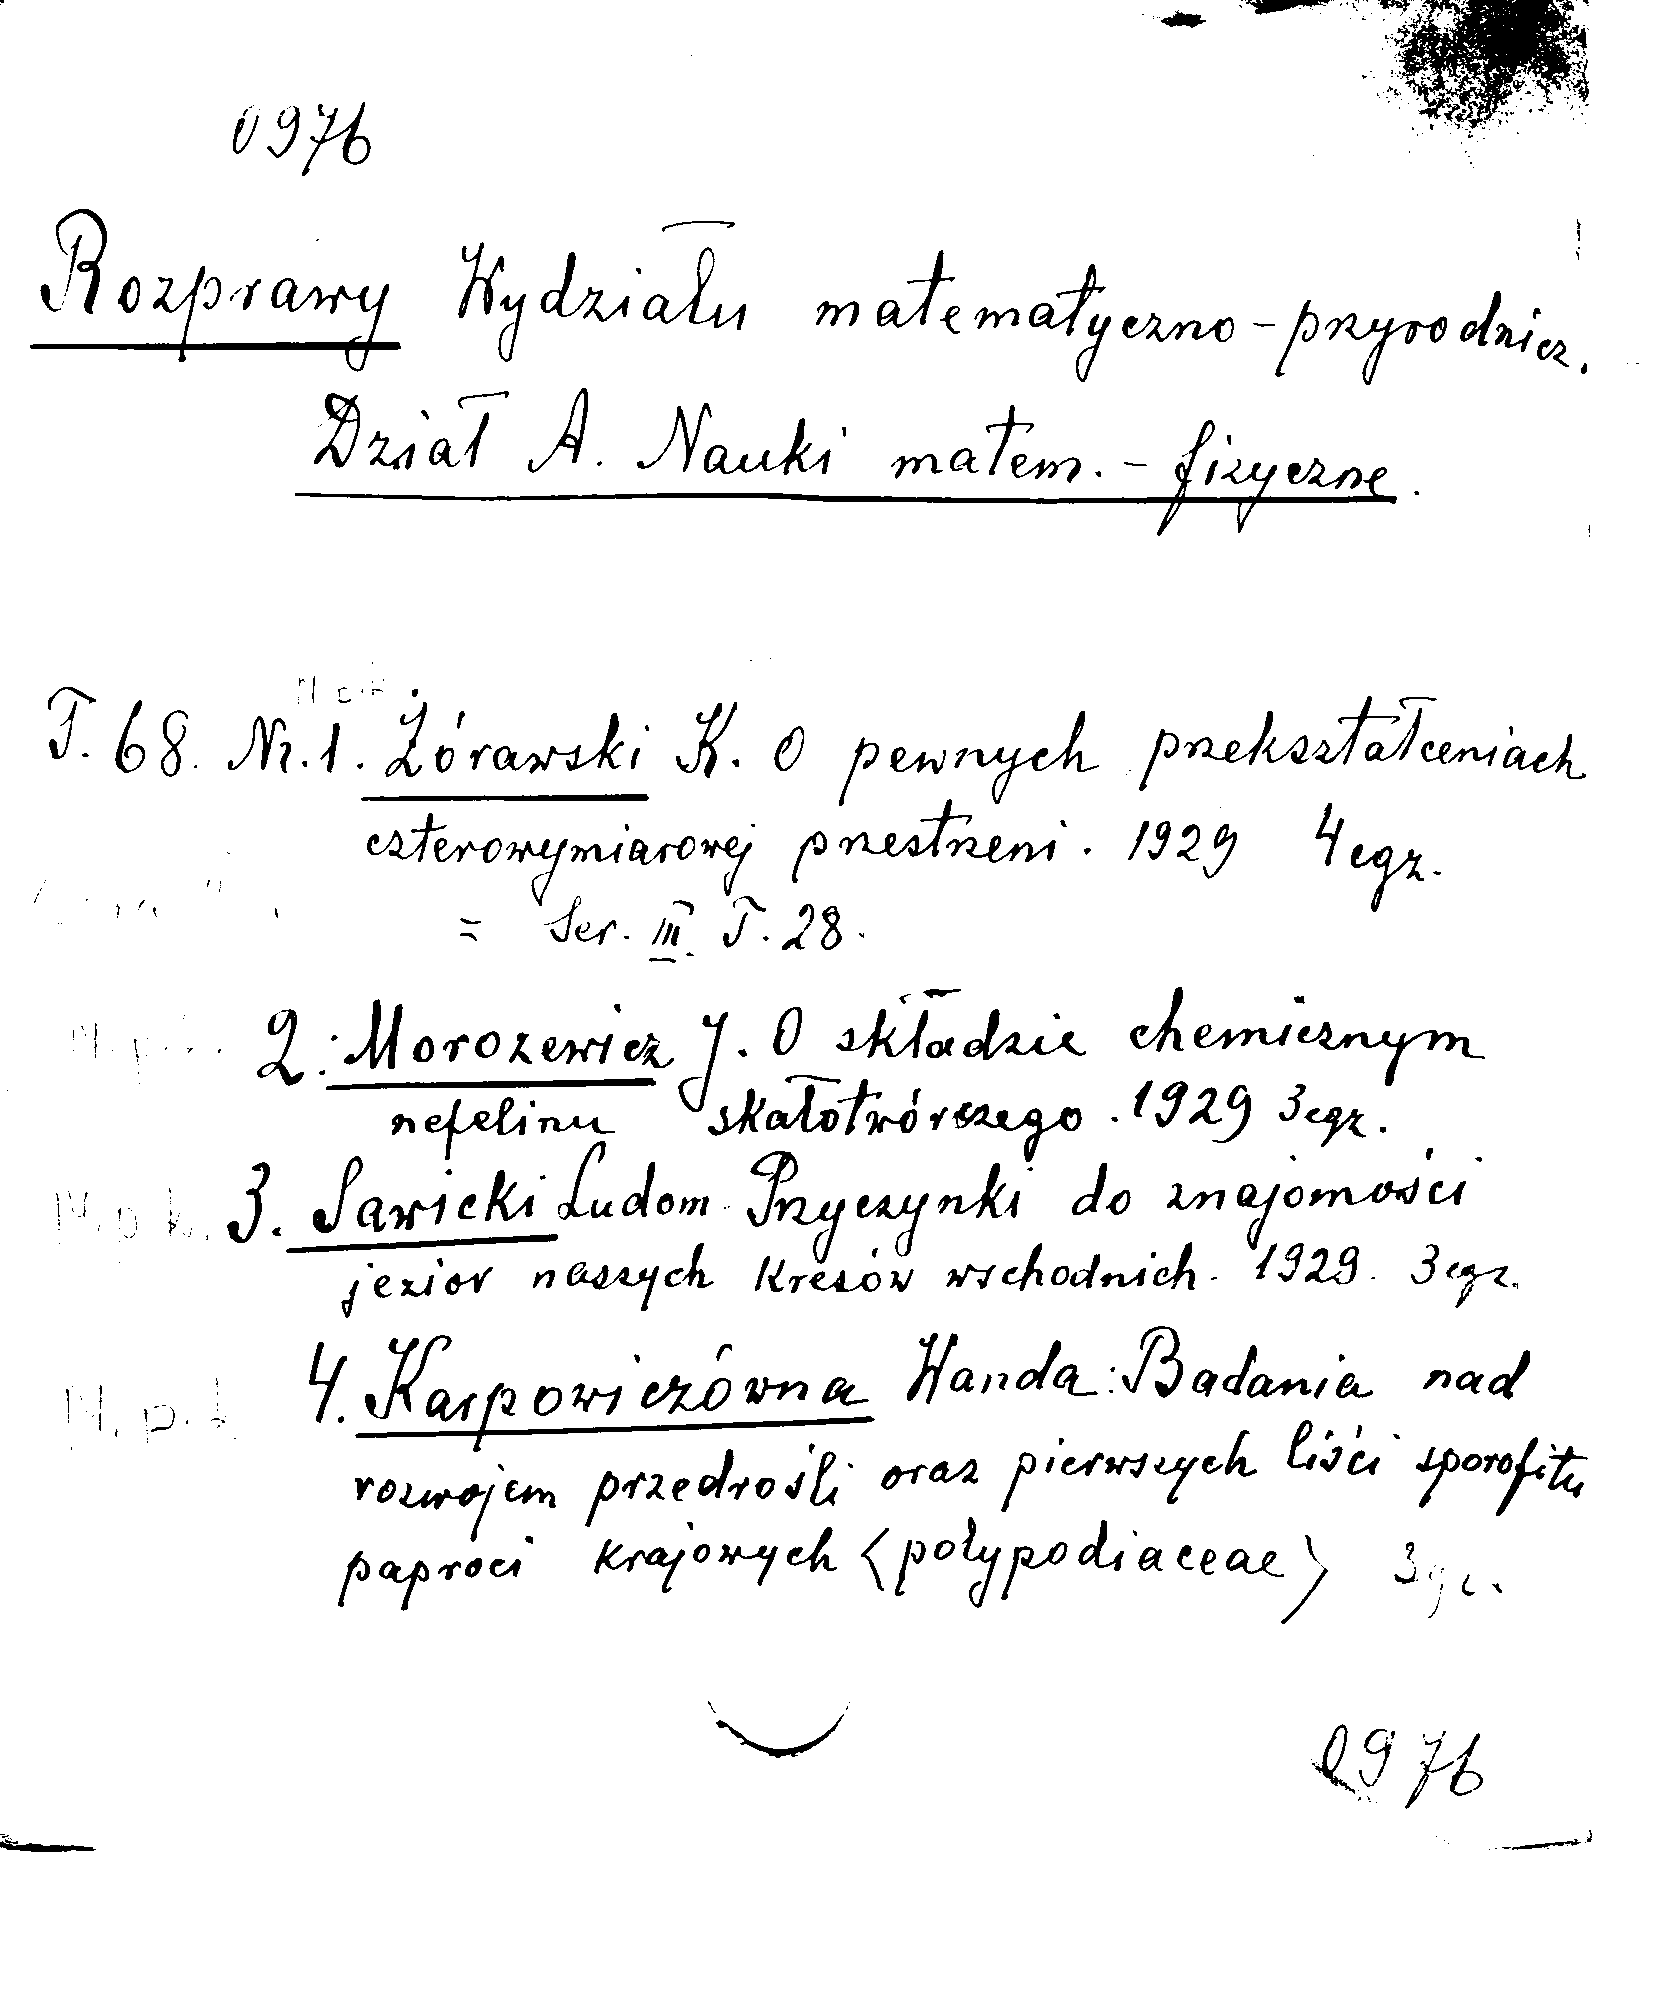 0976
Rozprawy Wydziału matematyczno-przyrodnicz.
Dział A. Nauki matem.-fizyczne.
T. 68. Nr. 1. Żórawski K. O pewnych przekształceniach
czterowymiarowej przestrzeni. 1929 4 egz.
= Ser. III. T. 28.
2. Morozewicz J. O składzie chemicznym
nefelinu skałotwórczego. 1929 3 egz.
M. p. k. 3. Sawicki Ludom. Przyczynki do znajomości
jezior naszych kresów wschodnich. 1929. 3 egz.
M. p. 4. Karpowiczówna Wanda: Badania nad
rozwojem przedrośli oraz pierwszych liści sporofitu
paproci krajowych <polypodiaceae> 3
0976